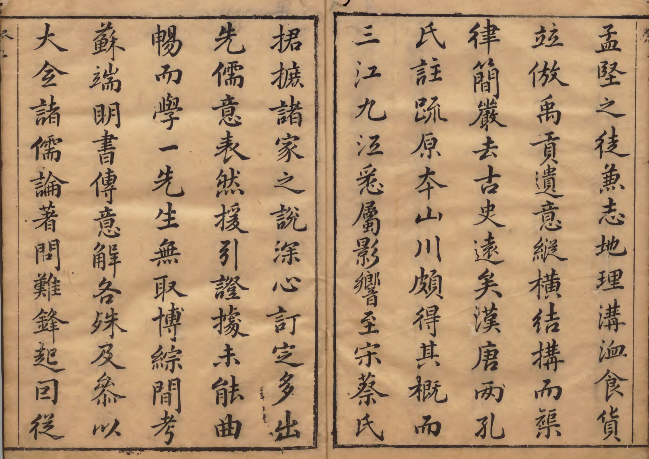 孟堅之徒兼志地理溝洫食貨
竝倣禹貢遺意縱橫结搆而榘
律簡嚴去古史逺矣漢唐兩孔
氏註䟽原夲山川頗得其槪而
三江九江㤀屬影響至宋蔡氏
捃摭諸家之說深心訂定多出
先儒意表然援引證據未能曲
暢而學一先生無取博綜間考
蘇端明書傳意解各殊及叅以
大全諸儒論著問難鋒起回從